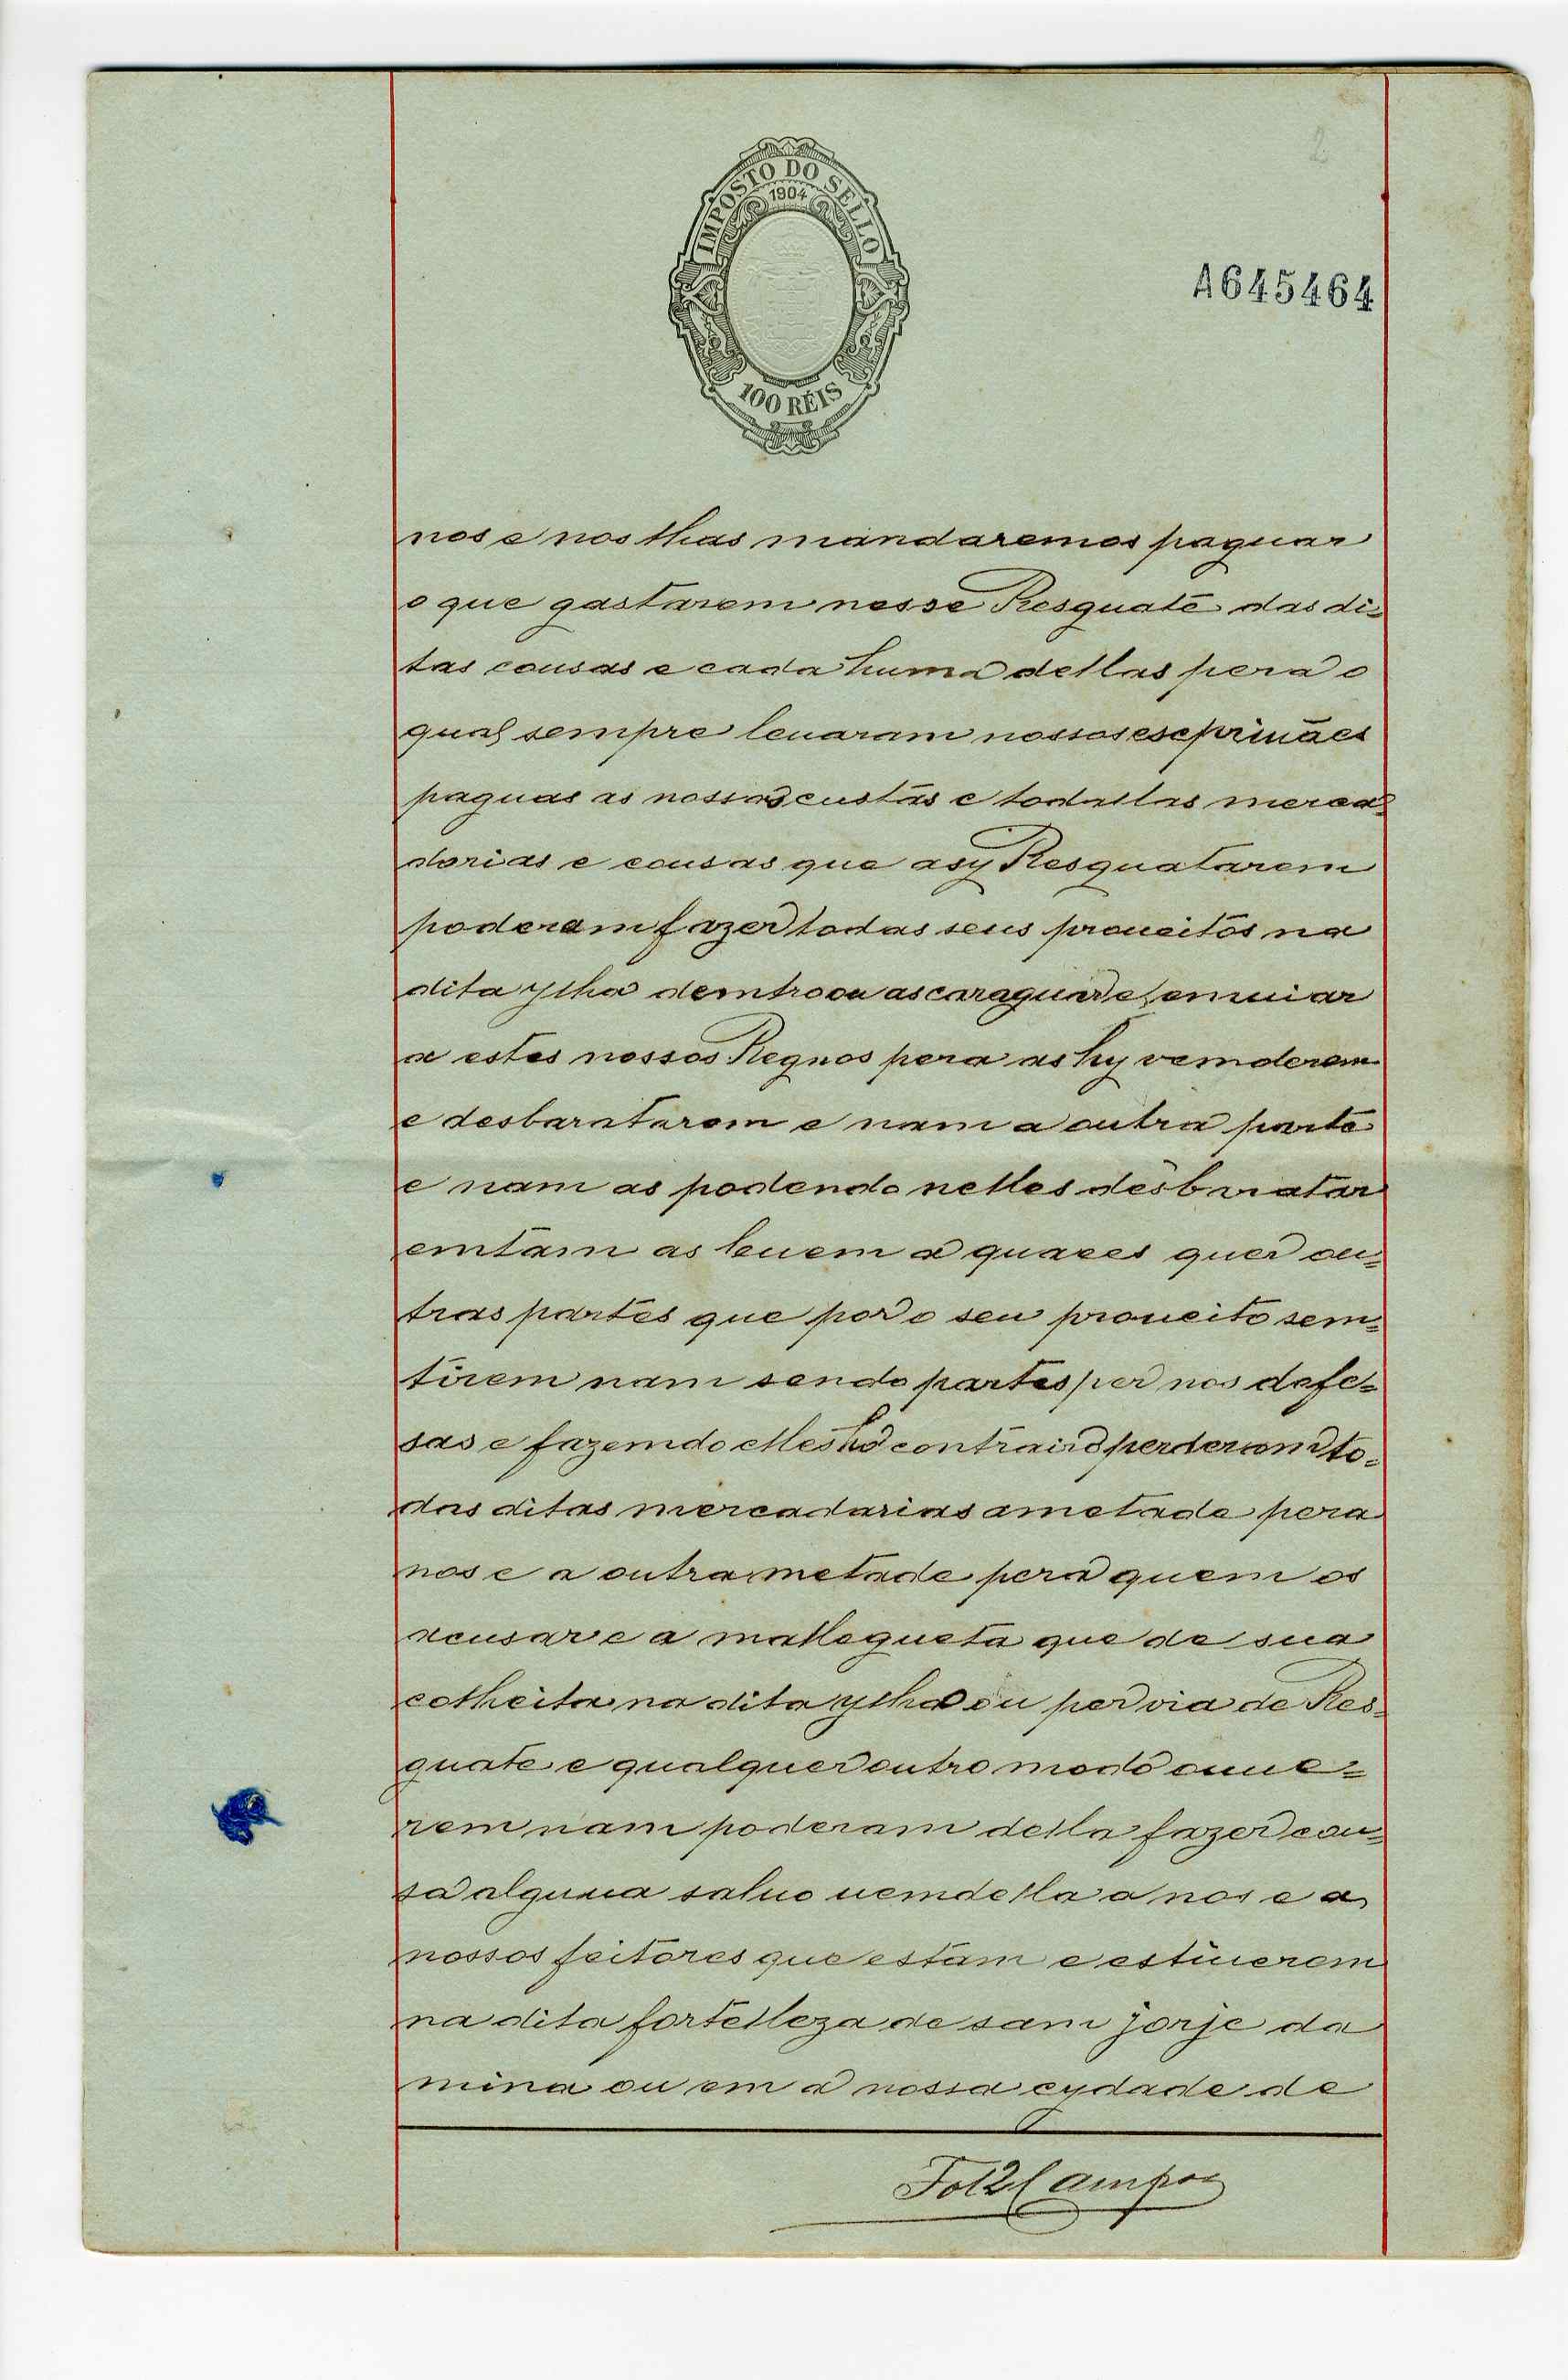 2
IMPOSTO DO SELLO
1904
100 RÉIS
A645464
nos e nos lhas mandaremos paguar
o que gastarem nesse Resguate das di=
tas cousas e cada huma dellas pera o
qual sempre leuaram nossos escpriuães
paguas as nossas custas e todallas merca=
darias e cousas que asy Resguatarem
poderam fazer todas seus proueitos na
dita ylha demtro ou as caraguar e emuiar
a estes nossos Regnos pera as hy vemderem
e desbaratarem e nam a outra parte
e nam as podendo nelles desbaratar
emtam as leuem a quaees quer ou=
tras partes que por o seu proueito sem=
tirem nam sendo partes per nos defe=
sas e fazemdo elles ho contrairo perderam to=
das ditas mercadarias ametade pera
nos e a outra metade pera quem os
acusar e a mallegueta que de sua
colheita na dita ylha ou per via de Res=
guate e qualquer outro modo ouue=
rem nam poderam della fazer cou=
sa alguma saluo uemdella a nos e a
nossos feitores que estam e estiuerem
na dita fortelleza de sam jorje da
mina ou em a nossa cydade de
Fol 2 Campos